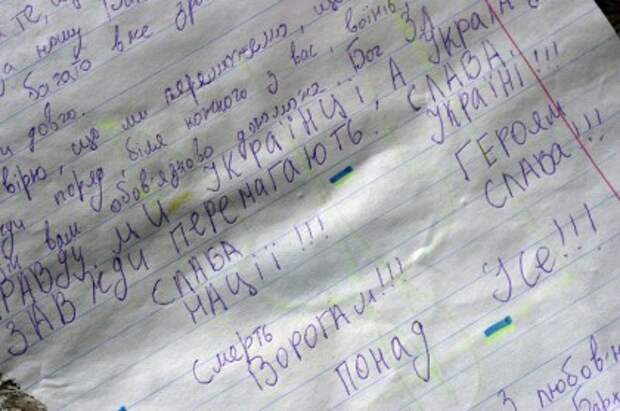 те, що
нашу
багато вже
довго.
вірю, що ми переможемо, що
поряд, біля кожного з вас, воїнів
вам обов'язково допоможе. Бог ЗА
РАВДУ МИ УКРАЇНЦІ, А УКРАЇН
ЗАВЖДИ ПЕРЕМАГАЮТЬ. СЛАВА
УКРАЇНІ!!!
ГЕРОЯМ
СЛАВА!!!
СЛАВА
НАЦІЇ!!!
Смерть
ВОРОГАМ!!!
ПОНАД УСЕ!!!
З любов'ю